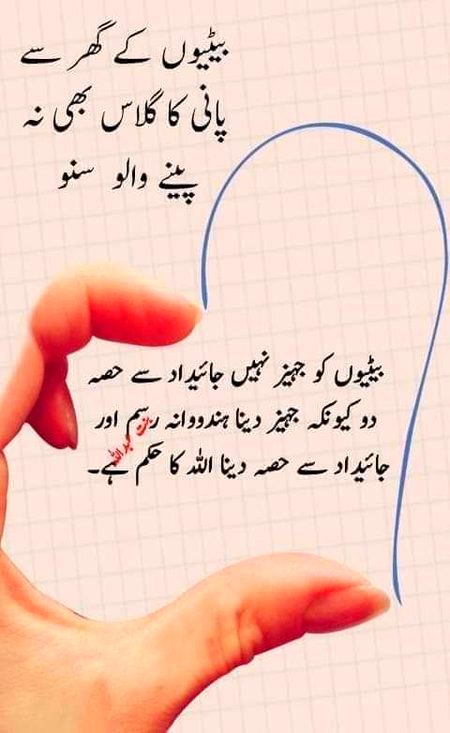 بیٹیوں کے گھر سے
پانی کا گلاس بھی نہ
پینے والو سنو
بیٹیوں کو جہیز نہیں جائیداد سے حصہ
دو کیونکہ جہیز دینا ہندووانہ رسم اور
جائیداد سے حصہ دینا اللہ کا حکم ہے۔